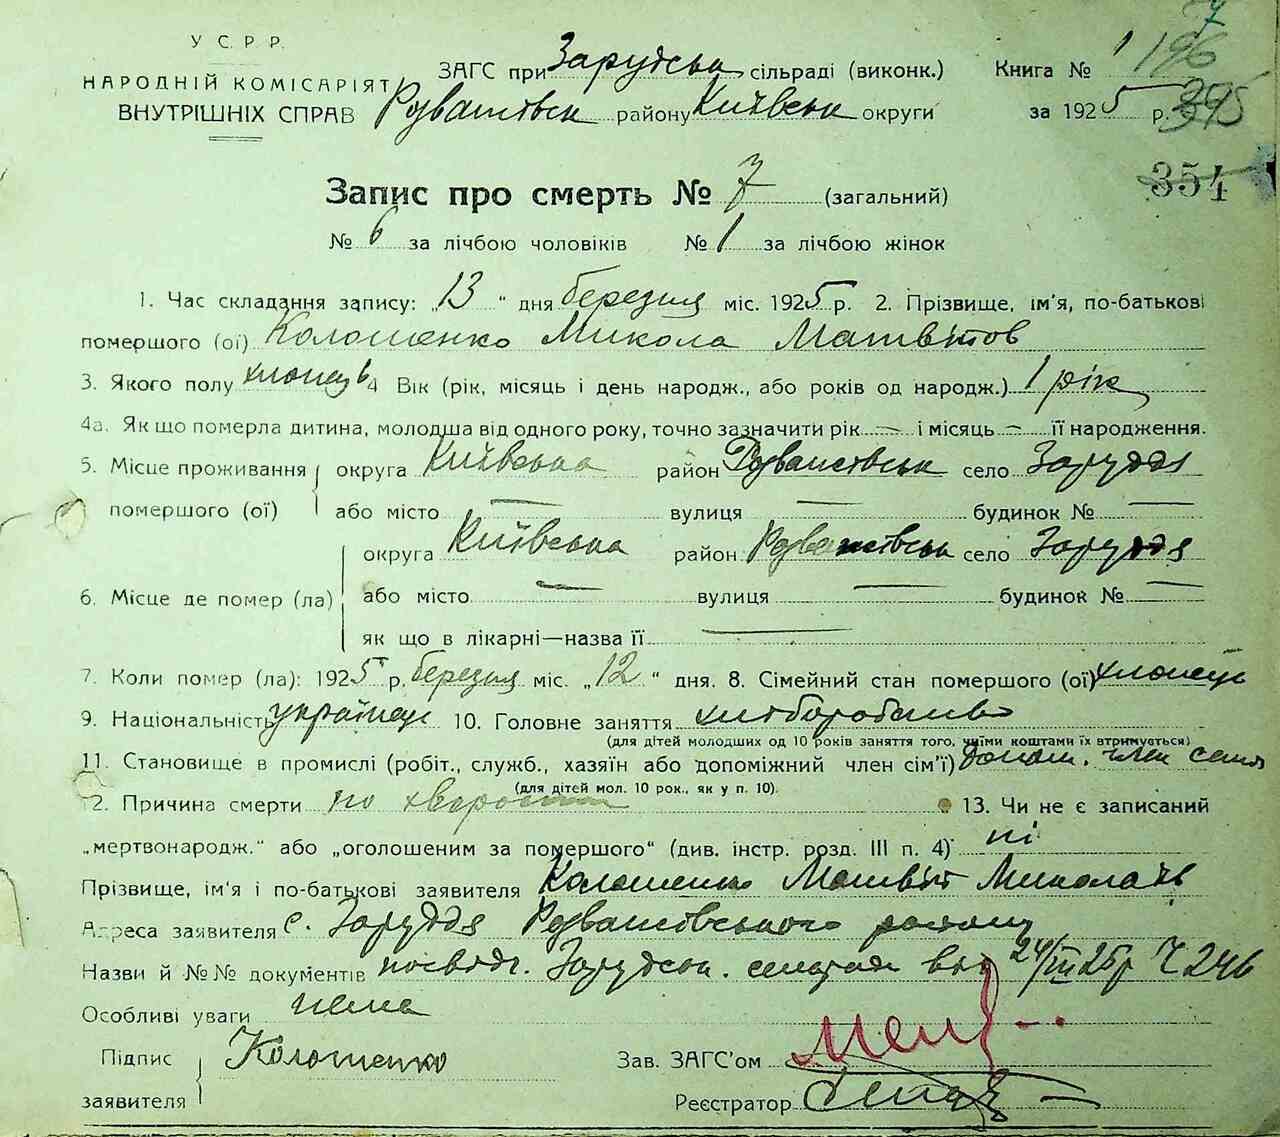 У С. Р. Р.
НАРОДНІЙ КОМІСАРІЯТ
ВНУТРІШНІХ СПРАВ
ЗАГС при Зарудська сільраді (виконк.)
Розважівськ району Київськ округи
Книга № 1
за 1925 р.
7
196
395
354
Запис про смерть № 7 (загальний)
№ 6 за лічбою чоловіків № 1 за лічбою жінок
1. Час складання запису: „13 “ дня березня міс. 1925 р. 2. Прізвище, ім'я, по-батькові
помершого (ої) Колошенко Микола Матвітов
3. Якого полу хлопець 4 Вік (рік, місяць і день народж., або років од народж.) 1 рік
4а. Як що померла дитина, молодша від одного року, точно зазначити рік — і місяць — її народження.
5. Місце проживання помершого (ої) округа Київська район Розважівськ село Заруддя
або місто — вулиця — будинок № —
6. Місце де помер (ла) округа Київська район Розважівськ село Заруддя
або місто — вулиця — будинок № —
як що в лікарні—назва її —
7. Коли помер (ла): 1925 р. березня міс. „12 “ дня. 8. Сімейний стан помершого (ої) хлопець
9. Національність українець 10. Головне заняття хліборобство
(для дітей молодших од 10 років заняття того, чиїми коштами їх втримується)
11. Становище в промислі (робіт., служб., хазяїн або допоміжний член сім'ї) допом. член сем'ї
(для дітей мол. 10 рок., як у п. 10).
12. Причина смерти по хворости 13. Чи не є записаний
„мертвонародж.“ або „оголошеним за помершого“ (див. інстр. розд. III п. 4) ні
Прізвище, ім'я і по-батькові заявителя Колошенко Матвій Миколаїв
Адреса заявителя с. Заруддя Розважівського району
Назви й №№ документів посвідч. Зарудськ. сельради від 24/III 25р Ч 246
Особливі уваги нема
Підпис заявителя Колошенко
Зав. ЗАГС'ом
Реєстратор